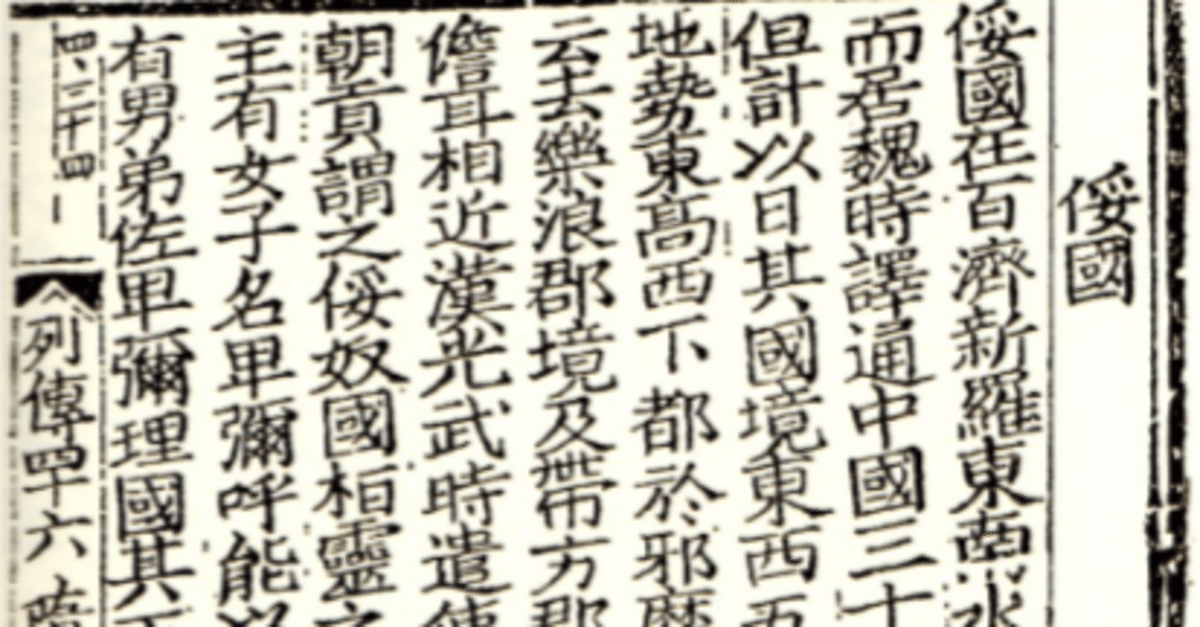 俀國
俀國在百濟新羅東南水
而居魏時譯通中國三十
但計以日其國境東西五
地勢東高西下都於邪靡
云去樂浪郡境及帶方郡
儋耳相近漢光武時遣使
朝貢謂之俀奴國桓靈之
主有女子名卑彌呼能以
有男弟佐卑彌理國其王
列傳四十六 隋
四、三十四